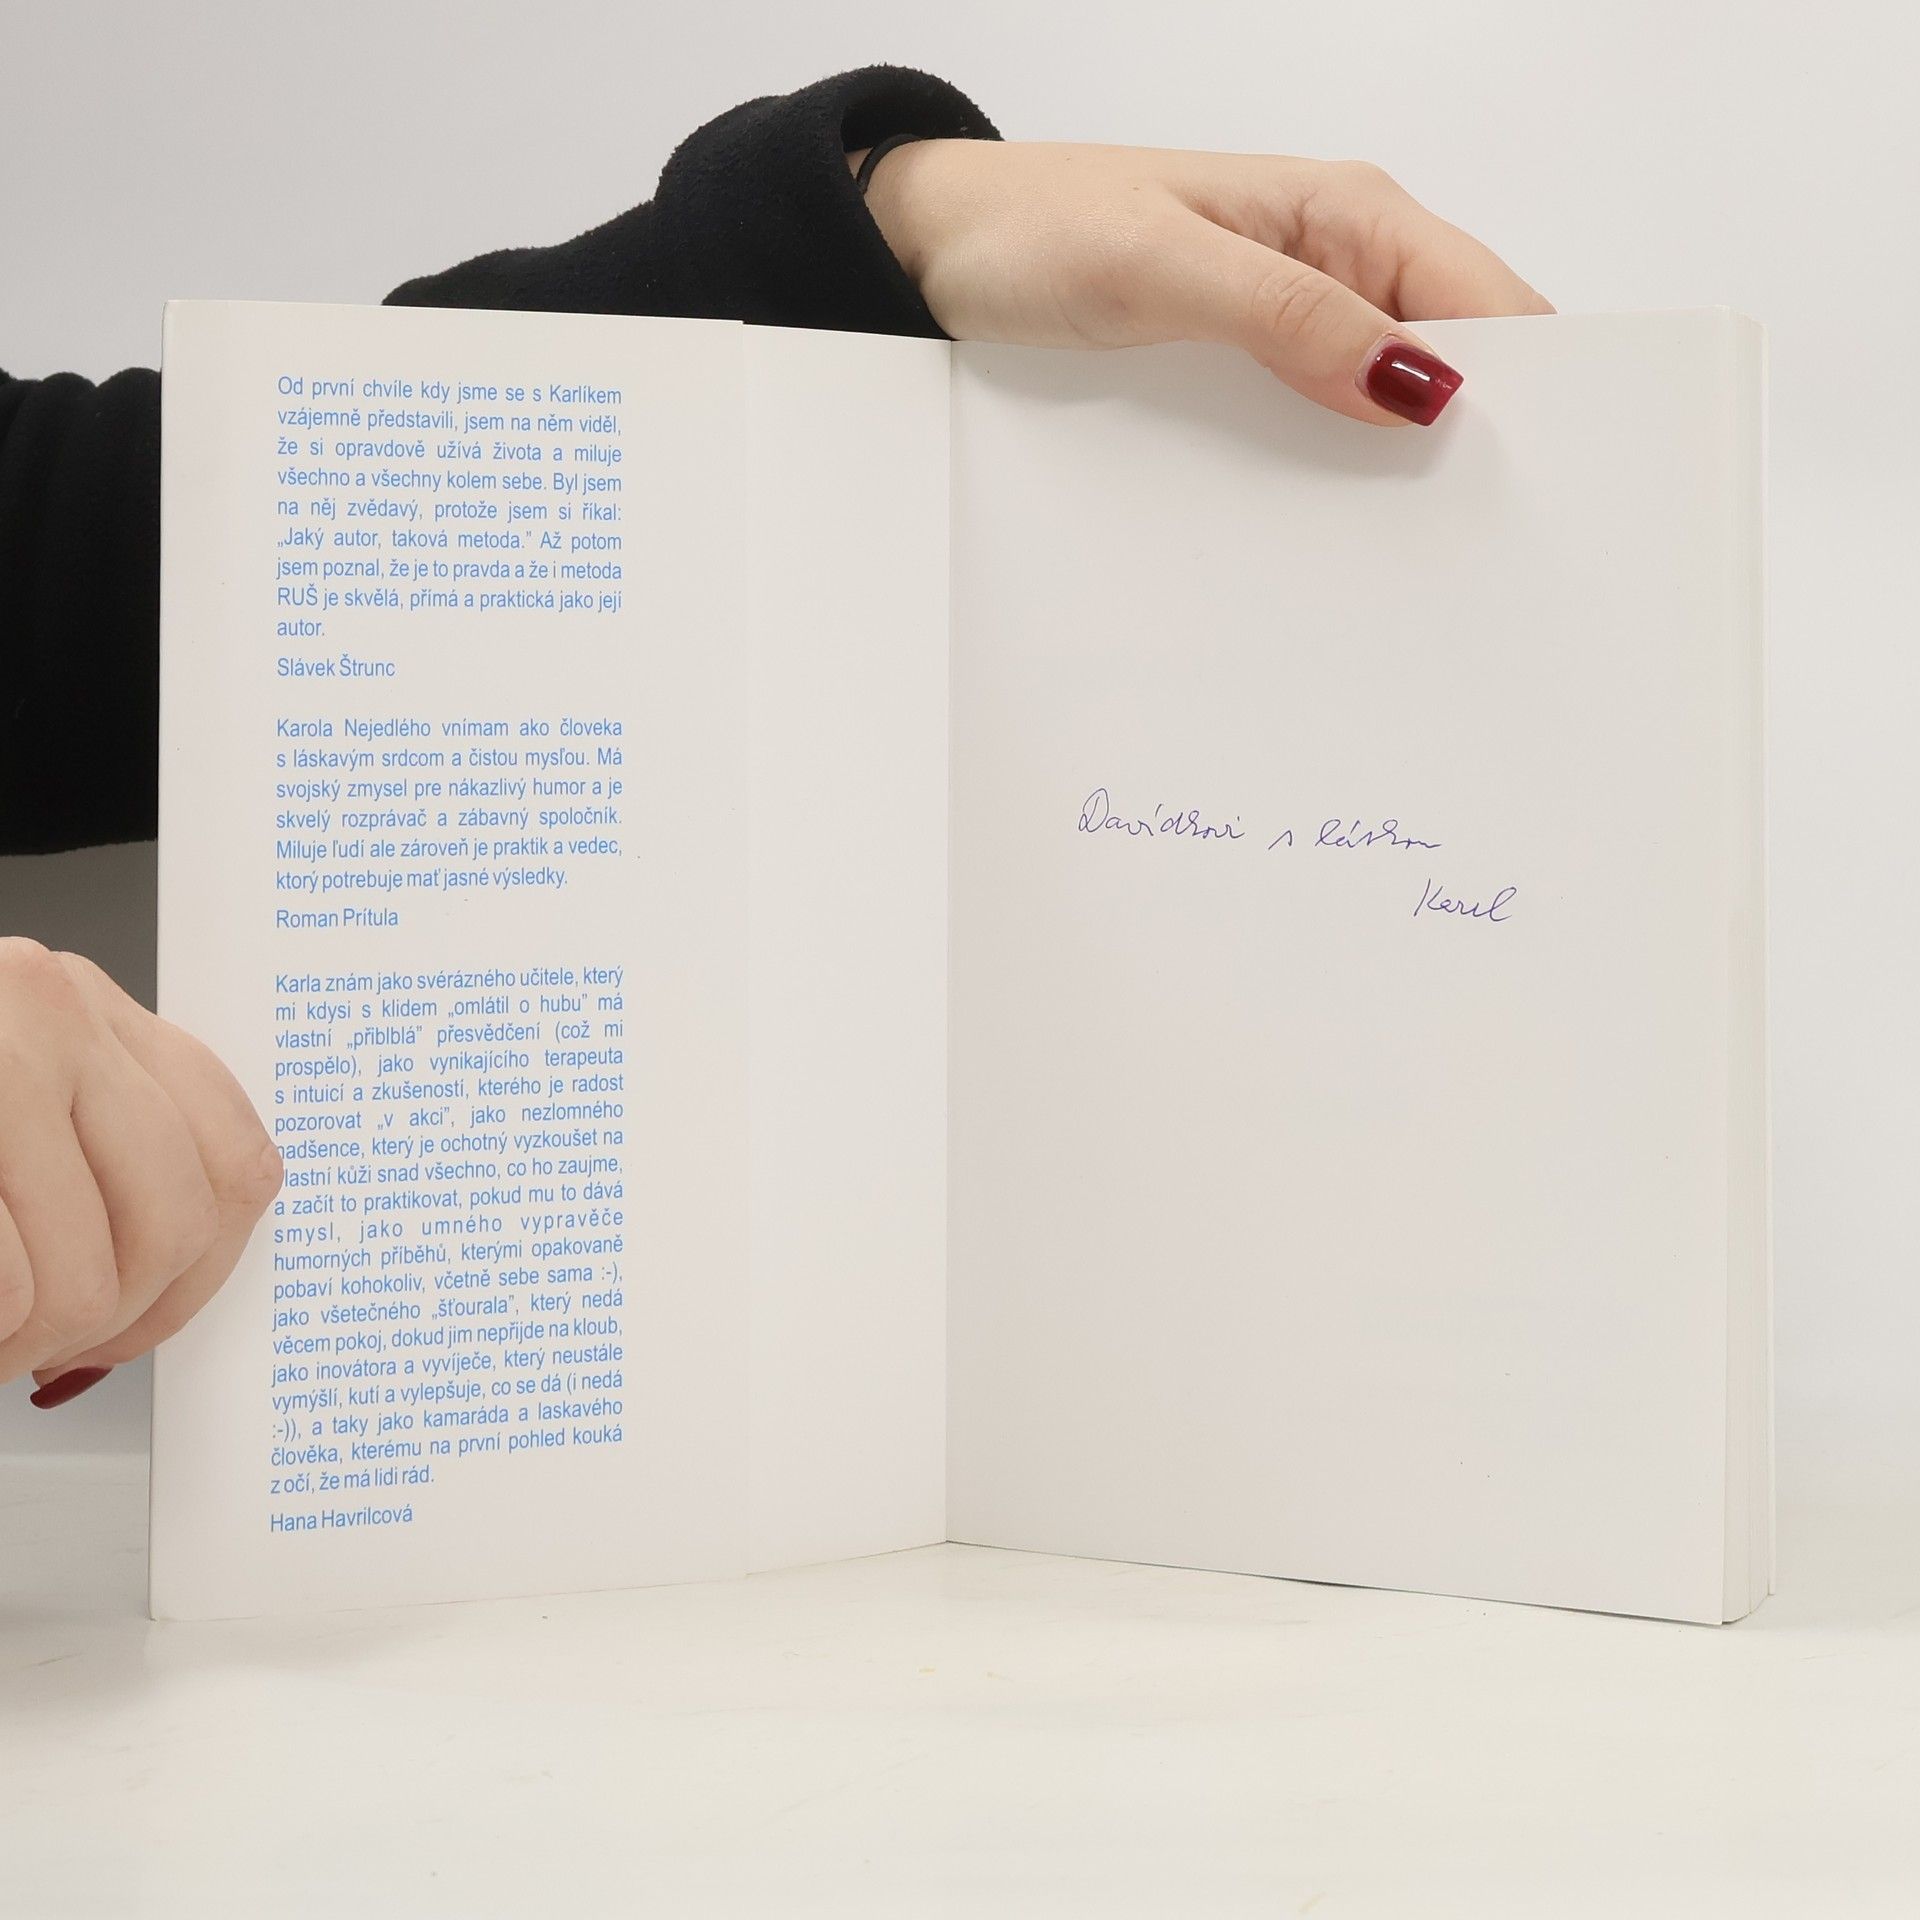 Od první chvíle kdy jsme se s Karlíkem
vzájemně představili, jsem na něm viděl,
že si opravdově užívá života a miluje
všechno a všechny kolem sebe. Byl jsem
na něj zvědavý, protože jsem si říkal:
„Jaký autor, taková metoda.” Až potom
jsem poznal, že je to pravda a že i metoda
RUŠ je skvělá, přímá a praktická jako její
autor.
Slávek Štrunc
Karola Nejedlého vnímam ako človeka
s láskavým srdcom a čistou mysľou. Má
svojský zmysel pre nákazlivý humor a je
skvelý rozprávač a zábavný spoločník.
Miluje ľudí ale zároveň je praktik a vedec,
ktorý potrebuje mať jasné výsledky.
Roman Prítula
Karla znám jako svérázného učitele, který
mi kdysi s klidem „omlátil o hubu” má
vlastní „přiblblá” přesvědčení (což mi
prospělo), jako vynikajícího terapeuta
s intuicí a zkušeností, kterého je radost
pozorovat „v akci”, jako nezlomného
nadšence, který je ochotný vyzkoušet na
vlastní kůži snad všechno, co ho zaujme,
a začít to praktikovat, pokud mu to dává
smysl, jako umného vypravěče
humorných příběhů, kterými opakovaně
pobaví kohokoliv, včetně sebe sama :-),
jako všetečného „šťourala”, který nedá
věcem pokoj, dokud jim nepřijde na kloub,
jako inovátora a vyvíječe, který neustále
vymýšlí, kutí a vylepšuje, co se dá (i nedá
:-)), a taky jako kamaráda a laskavého
člověka, kterému na první pohled kouká
z očí, že má lidi rád.
Hana Havrilcová
Davídkovi s láskou
Karel